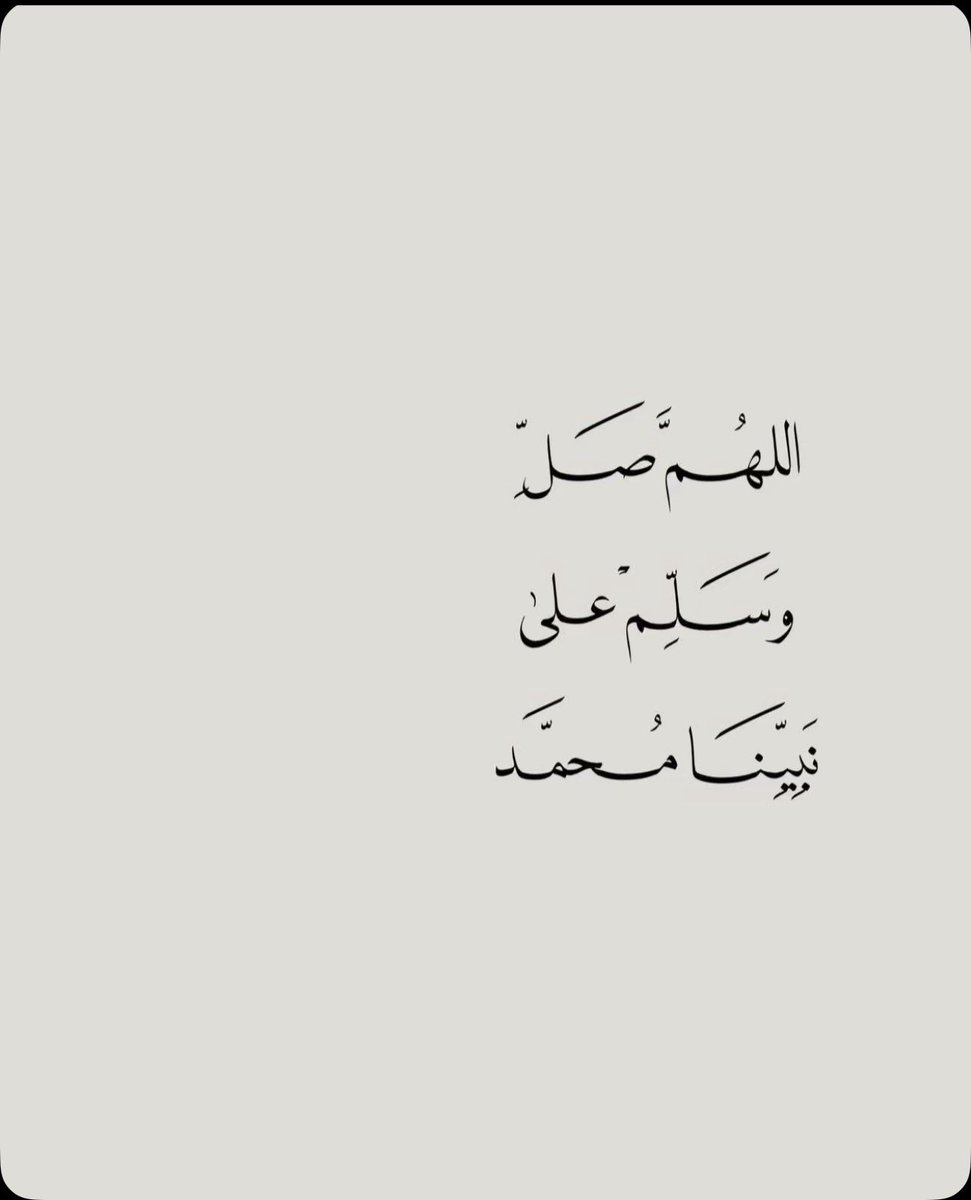 اللهُمَّ صَلِّ
وَسَلِّمْ عَلىٰ
نَبِيِّنَا مُحمَّد